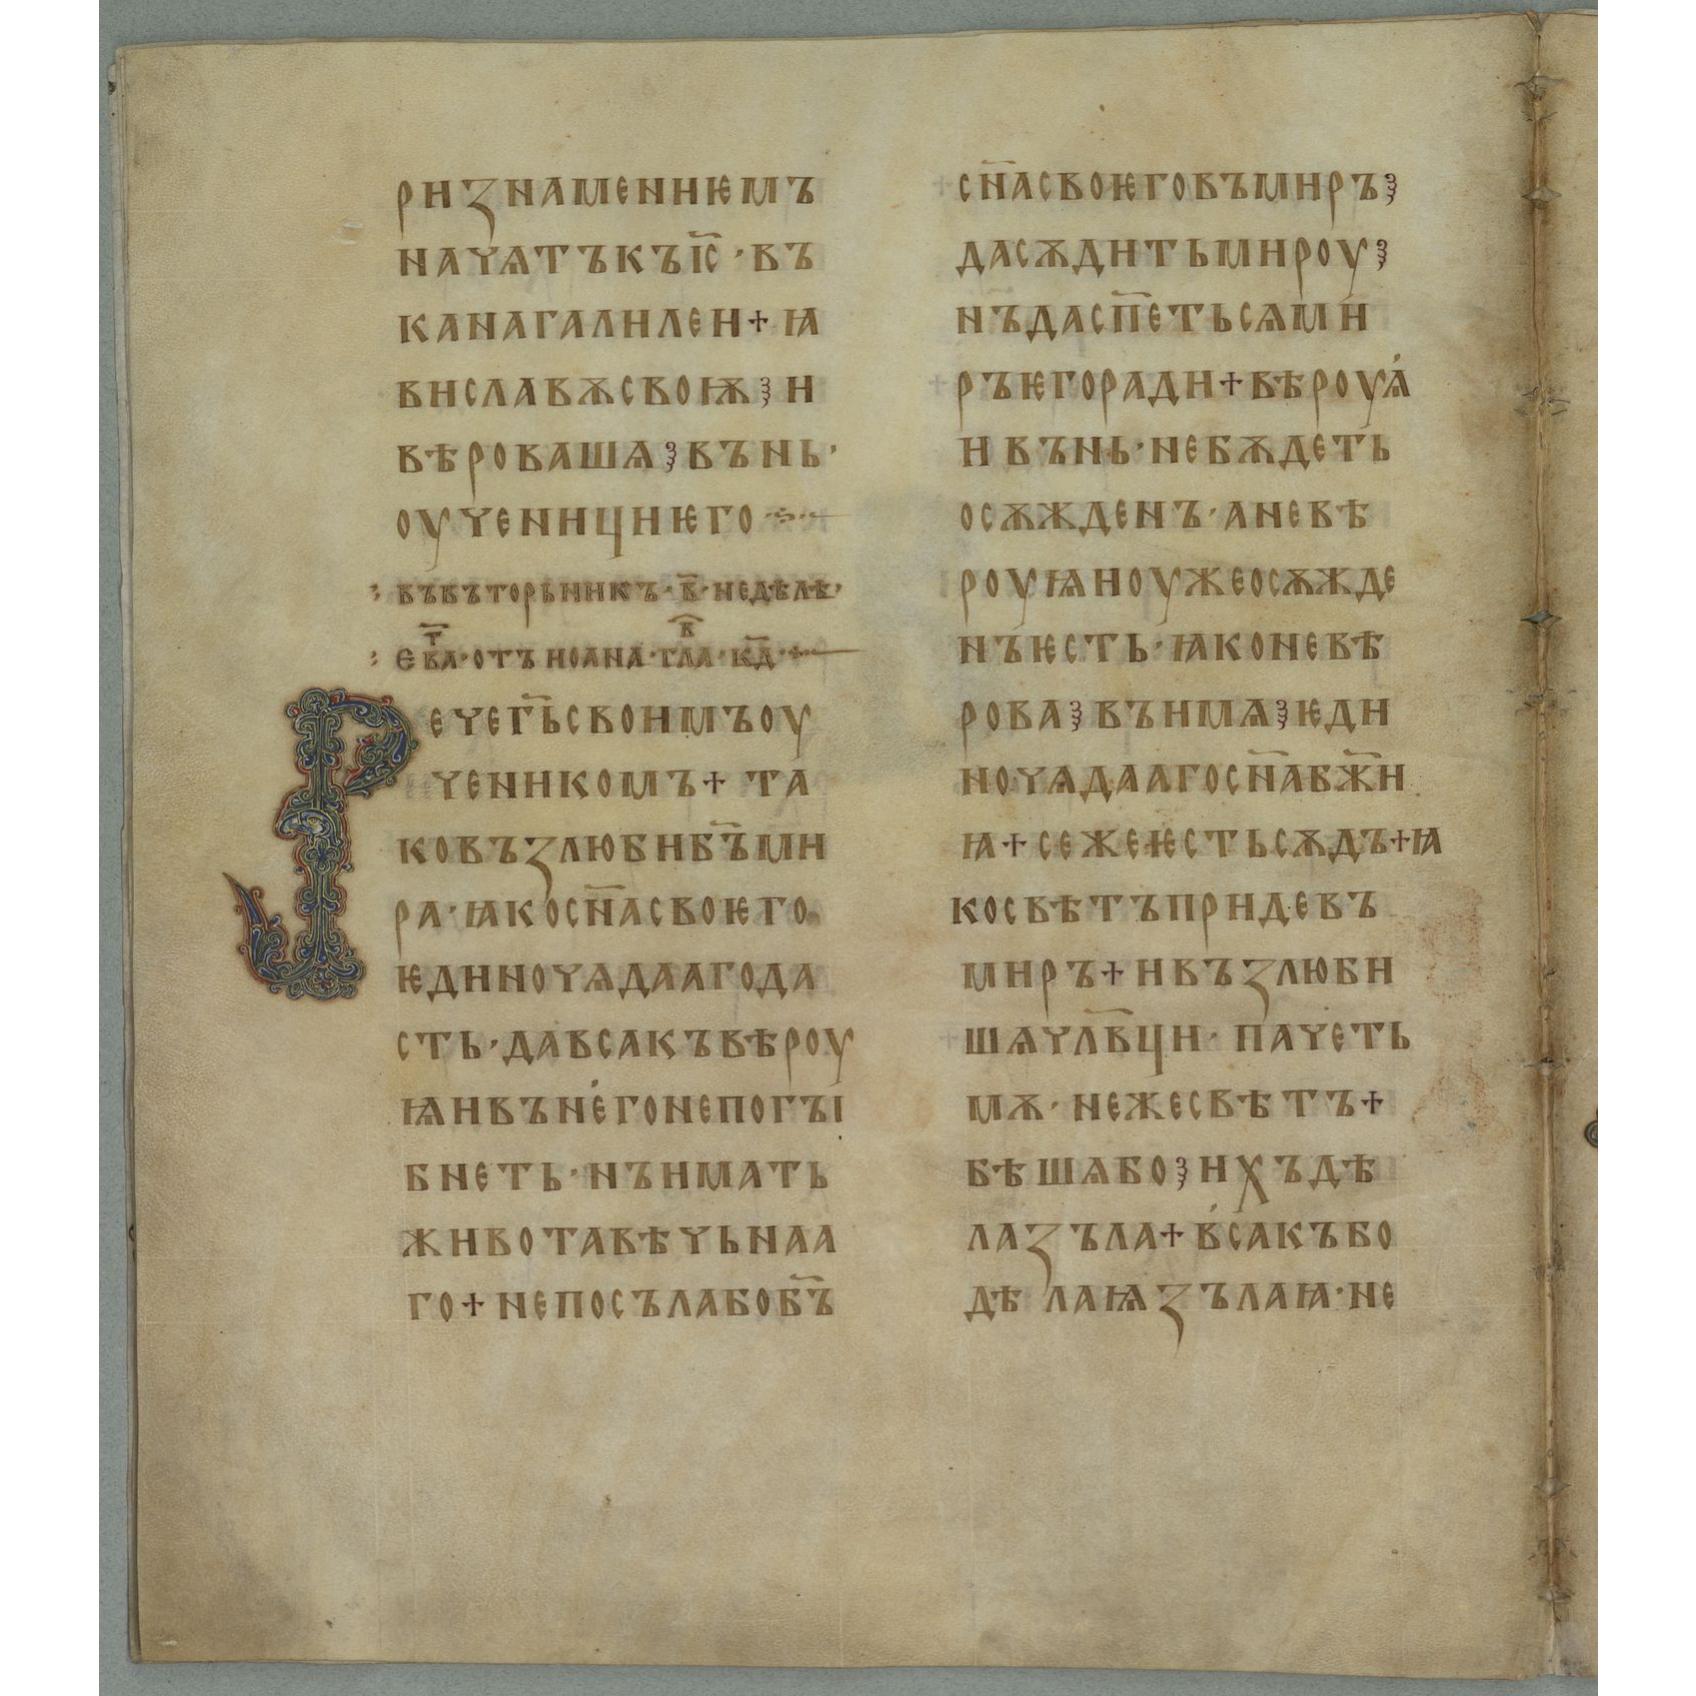 ри знамениѥмъ
начѧтъкъ і҃с · въ
кана галилеи + ꙗ
ви славѫ своѭ ꙁ и
вѣровашѧ ꙁ вънь ·
оученици ѥго
въ въторьникъ · в҃ · недѣлѣ ·
ева҃т · отъ иоана · гла҃в · к҃д · +
Рече г҃ь своимъ оу
ченикомъ + та
ко възлюби б҃ъ ми
ра · ꙗко с҃на своѥго
ѥдиночѧдааго да
сть · да всакъ вѣроу
ꙗи въ него не погꙑ
бнеть · нъ имать
живота вѣчьнаа
го + не посъла бо б҃ъ
с҃на своѥго въ миръ ꙁ
да сѫдить мироу ꙁ
нъ да сп҃еть сѧ ми
ръ ѥго ради + вѣроуѧ
и вънь · не бѫдеть
осѫжденъ · а не вѣ
роуꙗи оуже осѫжде
нъ ѥсть · ꙗко не вѣ
рова ꙁ въ имѧ ꙁ ѥди
ночѧдааго с҃на б҃жи
ꙗ + се же ѥсть сѫдъ + ꙗ
ко свѣтъ приде въ
миръ + и възлюби
шѧ чл҃вци · паче ть
мѫ · неже свѣтъ +
бѣшѧ бо ꙁ ихъ дѣ
ла зъла + всакъ бо
дѣлаꙗ зълаꙗ · не